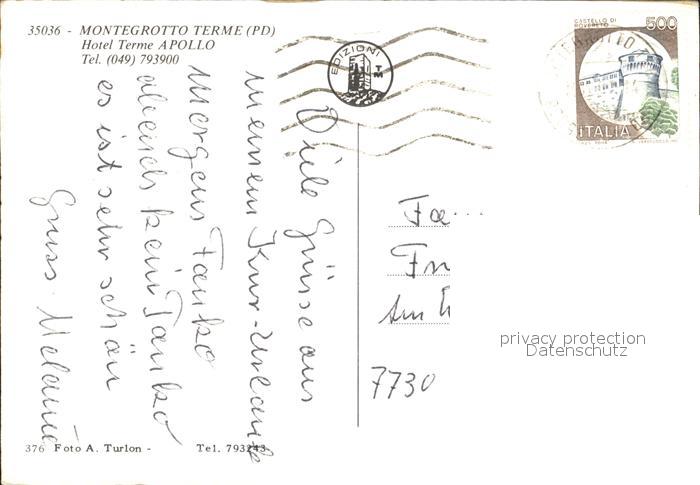 35036 - MONTEGROTTO TERME (PD)
Hotel Terme APOLLO
Tel. (049) 793900
EDIZIONI TM
CASTELLO DI ROVERETO
500
ITALIA
Viele Grüsse aus
meinem Kur-Urlaub
Morgens Fanko
abends kein Tanko
es ist sehr schön
Gruss. Melanie
Fa...
Fr
Am
7730
privacy protection
Datenschutz
376 Foto A. Turlon - Tel. 793243